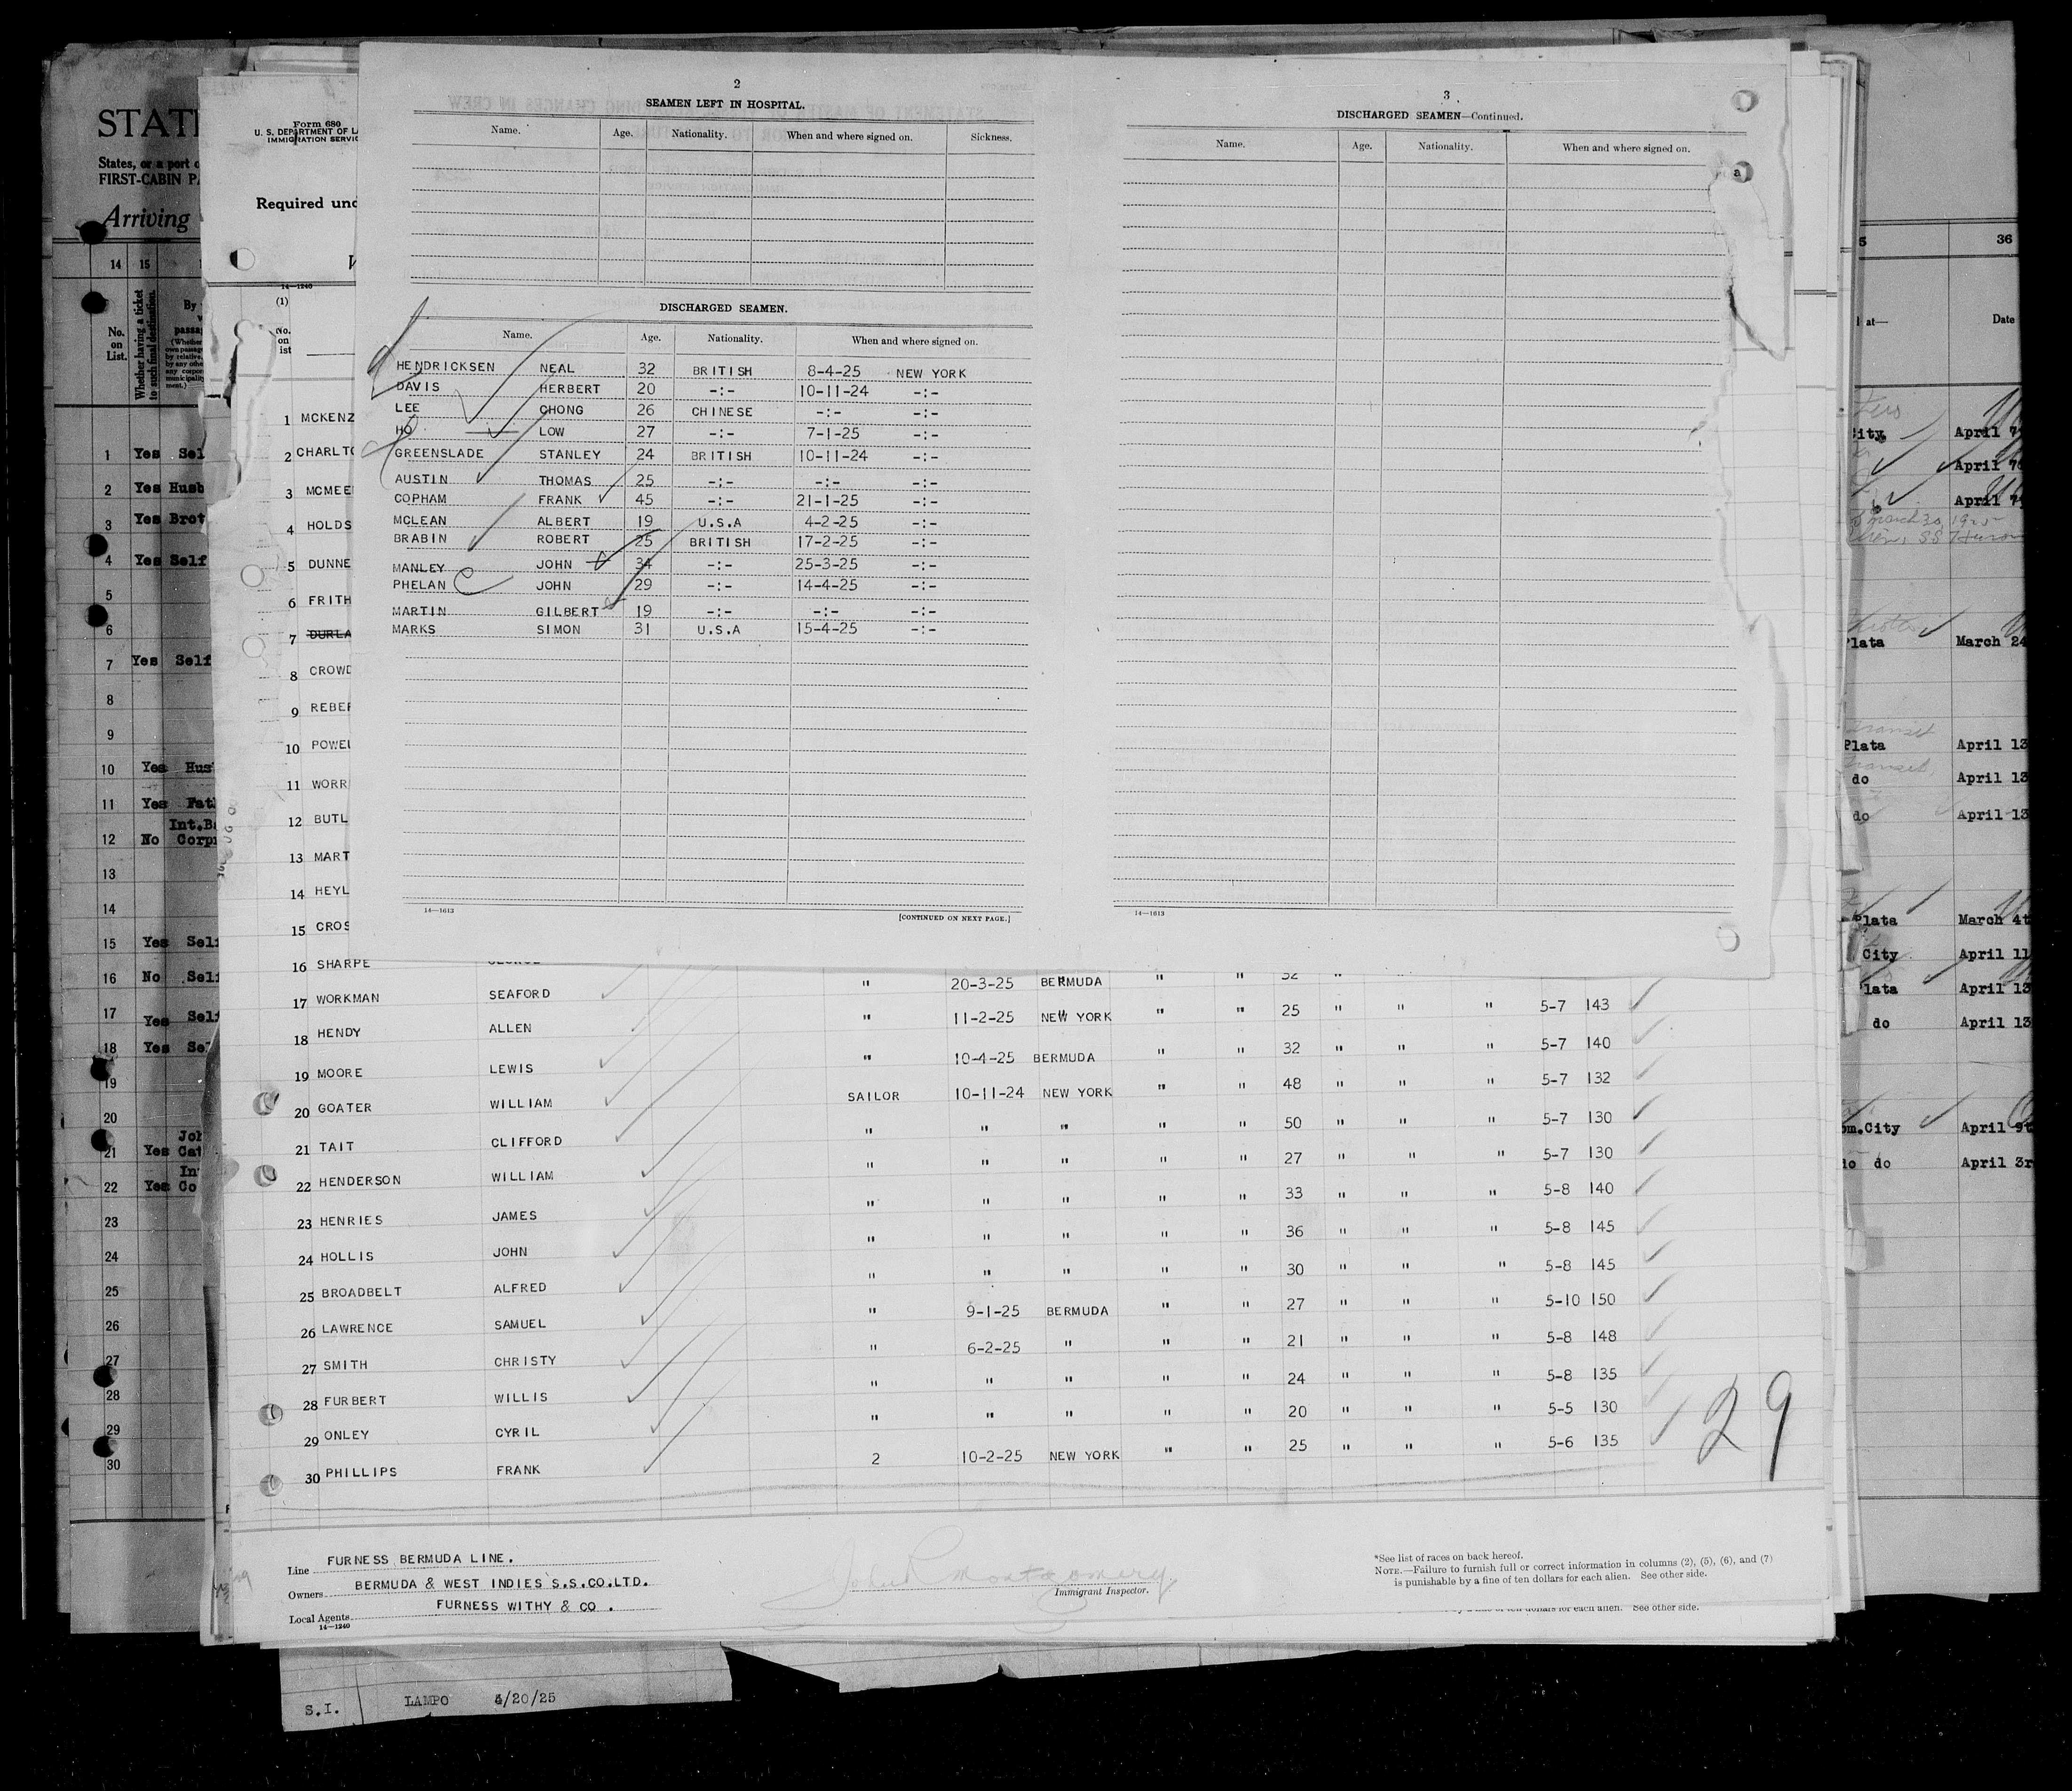 STAT
States, or a port o
FIRST-CABIN PA
Arriving
14 15
No. on List.
Whether having a ticket to such final destination.
1 Yes Sel
2 Yes Husb
3 Yes Brot
4 Yes Self
5
6
7 Yes Self
8
9
10 Yes Hus
11 Yes Fat
Int.B
12 No Corp
13
14
15 Yes Sel
16 No Sel
17 Yes Self
18 Yes Sel
19
20
Joh
21 Yes Cat
In
22 Yes Co
23
24
25
26
27
28
29
30
Form 680
U. S. DEPARTMENT OF LA
IMMIGRATION SERVIC
Required und
14—1240
(1)
No. on list
1 MCKENZ
2 CHARLTO
3 MCMEE
4 HOLDS
5 DUNNE
6 FRITH
7 DURLA
8 CROWD
9 REBER
10 POWEL
11 WORR
12 BUTL
13 MART
14 HEYL
15 CROS
2
SEAMEN LEFT IN HOSPITAL.
Name. Age. Nationality. When and where signed on. Sickness.
DISCHARGED SEAMEN.
Name. Age. Nationality. When and where signed on.
HENDRICKSEN NEAL 32 BRITISH 8-4-25 NEW YORK
DAVIS HERBERT 20 -:- 10-11-24 -:-
LEE CHONG 26 CHINESE -:- -:-
HO LOW 27 -:- 7-1-25 -:-
GREENSLADE STANLEY 24 BRITISH 10-11-24 -:-
AUSTIN THOMAS 25 -:- -:- -:-
COPHAM FRANK 45 -:- 21-1-25 -:-
MCLEAN ALBERT 19 U.S.A 4-2-25 -:-
BRABIN ROBERT 25 BRITISH 17-2-25 -:-
MANLEY JOHN 34 -:- 25-3-25 -:-
PHELAN JOHN 29 -:- 14-4-25 -:-
MARTIN GILBERT 19 -:- -:- -:-
MARKS SIMON 31 U.S.A 15-4-25 -:-
14—1613
[CONTINUED ON NEXT PAGE.]
3
DISCHARGED SEAMEN—Continued.
Name. Age. Nationality. When and where signed on.
14—1613
16 SHARPE GEORGE " 20-3-25 BERMUDA " " 32 "
17 WORKMAN SEAFORD " 11-2-25 NEW YORK " " 25 " " " 5-7 143
18 HENDY ALLEN " 10-4-25 BERMUDA " " 32 " " " 5-7 140
19 MOORE LEWIS SAILOR 10-11-24 NEW YORK " " 48 " " " 5-7 132
20 GOATER WILLIAM " " " " 50 " " " 5-7 130
21 TAIT CLIFFORD " " " " " 27 " " " 5-7 130
22 HENDERSON WILLIAM " " " " " 33 " " " 5-8 140
23 HENRIES JAMES " " " " " 36 " " " 5-8 145
24 HOLLIS JOHN " " " " " 30 " " " 5-8 145
25 BROADBELT ALFRED " 9-1-25 BERMUDA " " 27 " " " 5-10 150
26 LAWRENCE SAMUEL " 6-2-25 " " " 21 " " " 5-8 148
27 SMITH CHRISTY " " " " " 24 " " " 5-8 135
28 FURBERT WILLIS " " " " " 20 " " " 5-5 130
29 ONLEY CYRIL 2 10-2-25 NEW YORK " " 25 " " " 5-6 135
30 PHILLIPS FRANK
29
Line FURNESS BERMUDA LINE.
Owners BERMUDA & WEST INDIES S.S.CO.LTD.
Local Agents FURNESS WITHY & CO .
14—1240
John R Montgomery
Immigrant Inspector.
*See list of races on back hereof.
NOTE.—Failure to furnish full or correct information in columns (2), (5), (6), and (7)
is punishable by a fine of ten dollars for each alien. See other side.
for each alien. See other side.
S.I. LAMPO 4/20/25
36
at— Date
City April 7
April 7
April 7
March 30, 1925
Plata March 24
Plata April 13
do April 13
do April 13
Plata March 4t
City April 11
lata April 13
do April 13
om.City April 9t
do do April 3r